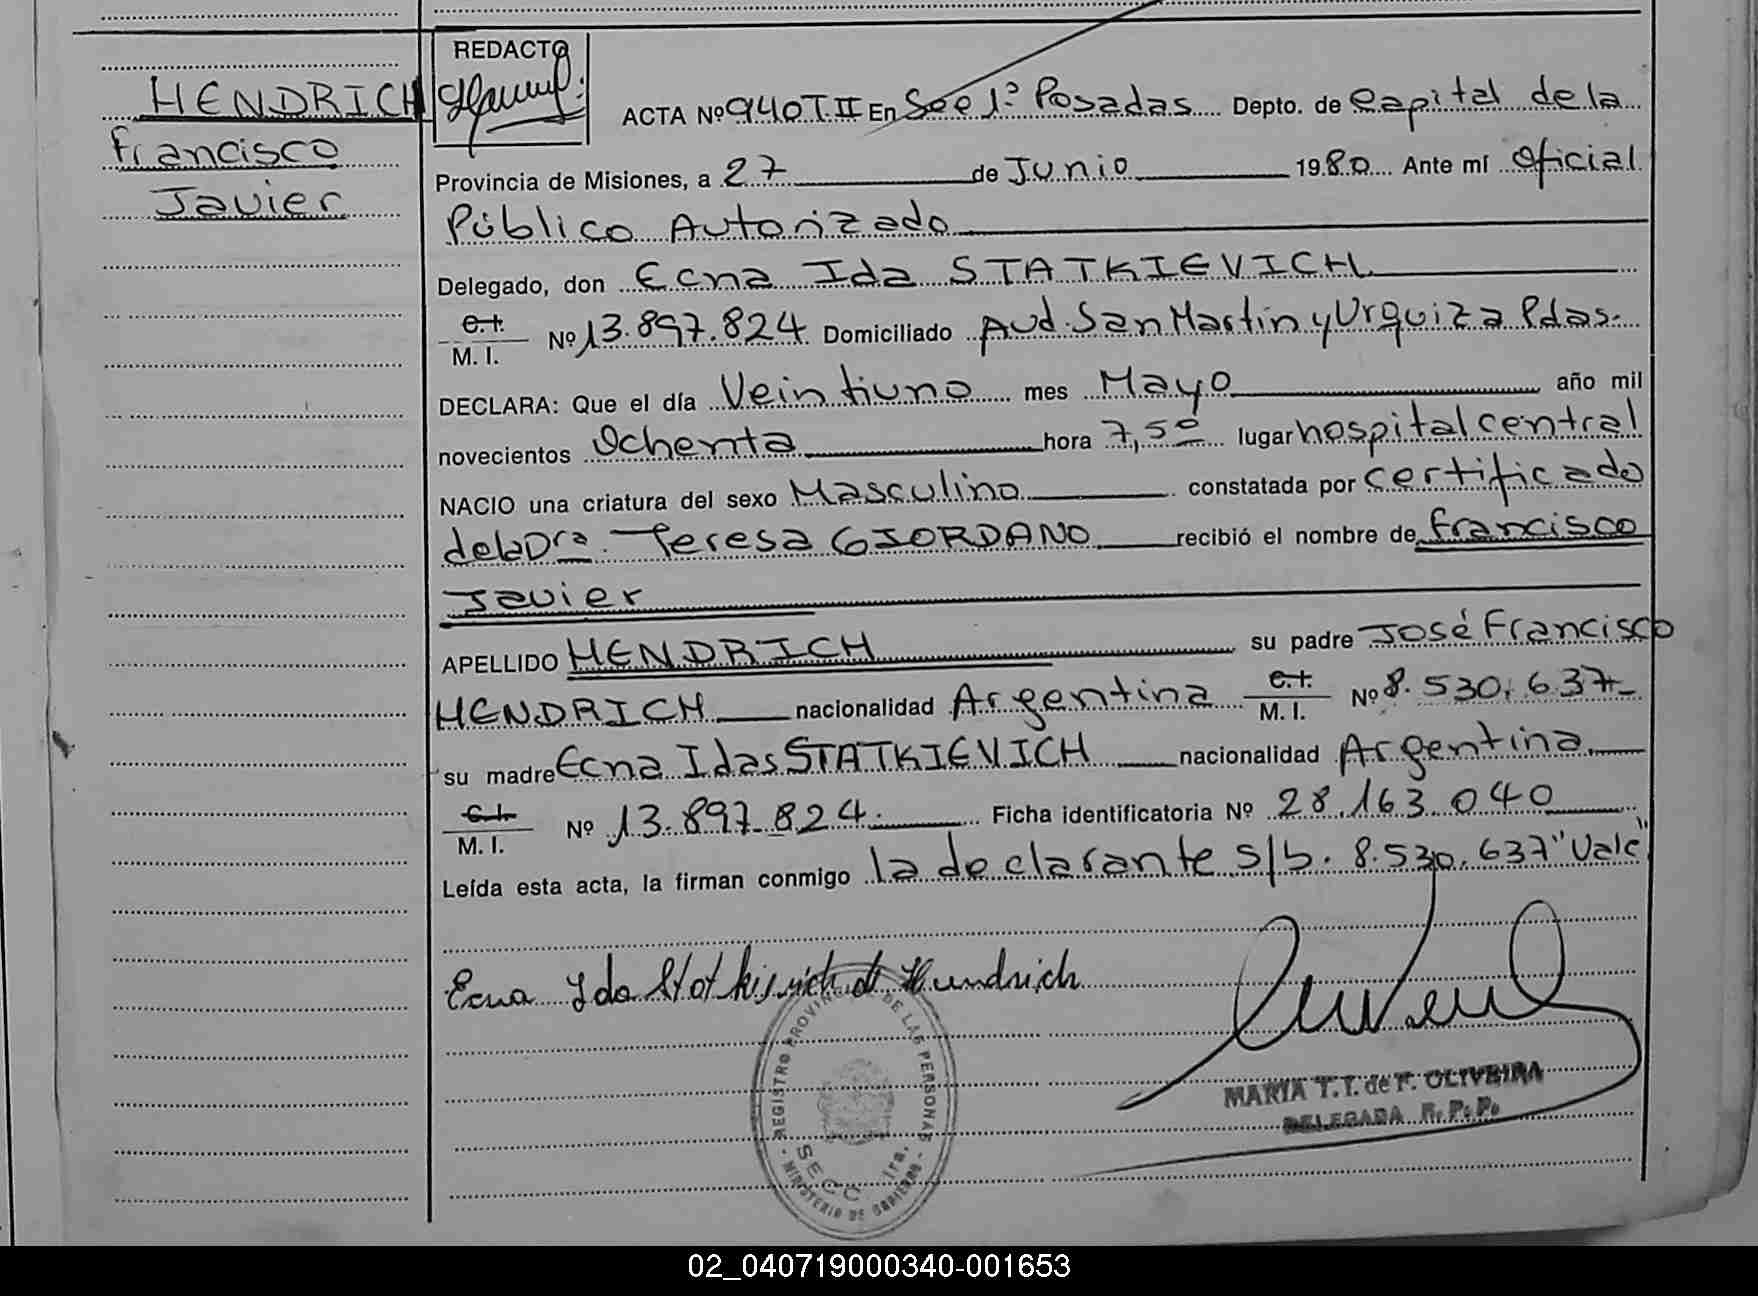 HENDRICH
Francisco
Javier
REDACTO
ACTA Nº 940 T II En Sec 1ª Posadas Depto. de Capital de la
Provincia de Misiones, a 27 de Junio 1980 Ante mí Oficial
Público Autorizado
Delegado, don Ecna Ida STATKIEVICH
C.I.
M. I. Nº 13.897.824 Domiciliado Avd. San Martin y Urquiza Pdas.
DECLARA: Que el día Veintiuno mes Mayo año mil
novecientos Ochenta hora 7,50 lugar hospital central
NACIO una criatura del sexo Masculino constatada por certificado
de la Dra. Teresa GIORDANO recibió el nombre de Francisco
Javier
APELLIDO HENDRICH su padre José Francisco
HENDRICH nacionalidad Argentina C.I. M. I. Nº 8.530.637
su madre Ecna Idas STATKIEVICH nacionalidad Argentina
C.I.
M. I. Nº 13.897.824 Ficha identificatoria Nº 28.163.040
Leída esta acta, la firman conmigo la declarante s/b. 8.530.637 "Vale"
Ecna Ida Statkievich de Hendrich
REGISTRO PROVINCIAL DE LAS PERSONAS
SECC. 1ra.
MINISTERIO DE GOBIERNO
MARIA T. T. de F. OLIVEIRA
DELEGADA R. P. P.
02_040719000340-001653